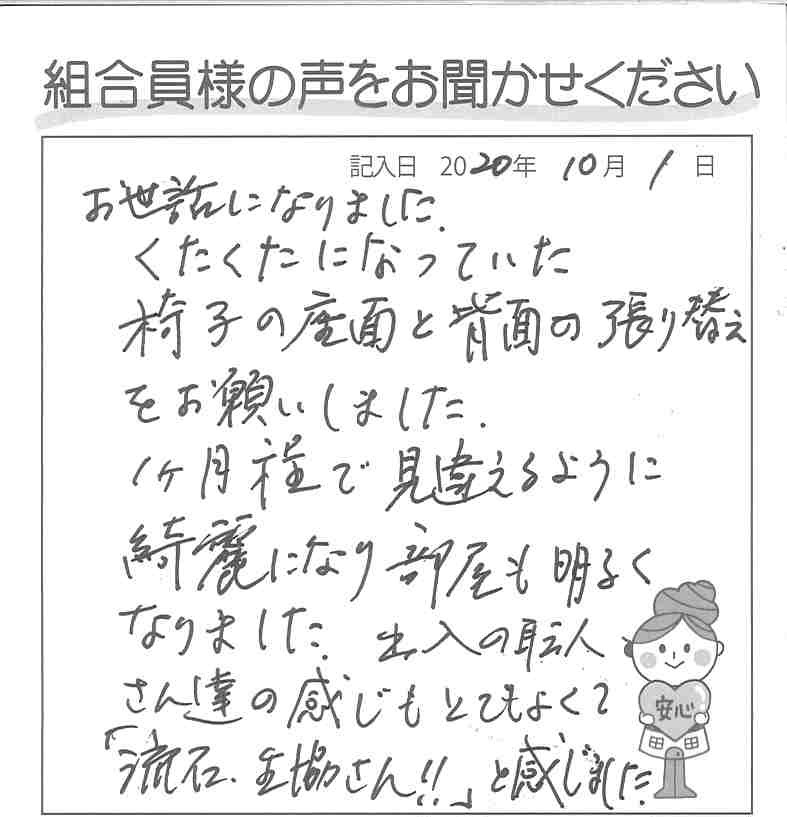 組合員様の声をお聞かせください
記入日 2020年 10月 1日
お世話になりました.
くたくたになっていた
椅子の座面と背面の張り替え
をお願いしました.
1ヶ月程で見違えるように
綺麗になり部屋も明るく
なりました. 出入の職人
さん達の感じもとてもよくて
「流石、生協さん!!」と感じました
安心